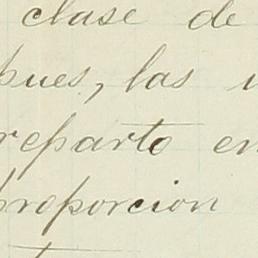 clase de
pues, las
reparto en
proporcion